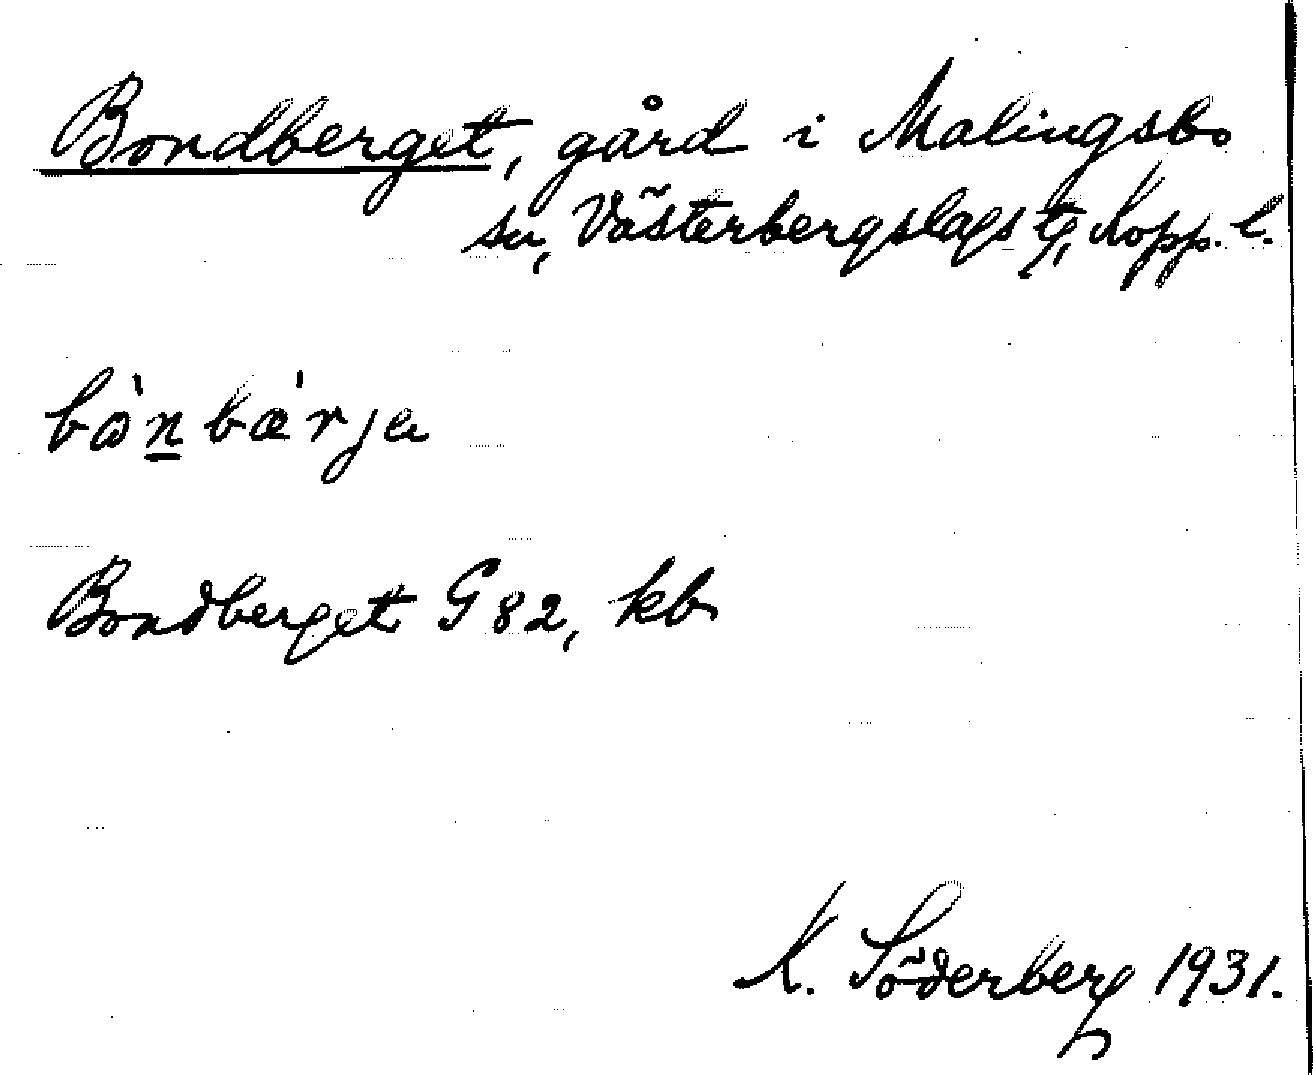 Bondberget, gård i Malingsbo
sn, Västerbergslags tg, Kopp. l.
bònbǽrja
Bondberget G 82, kb
K. Söderberg 1931.